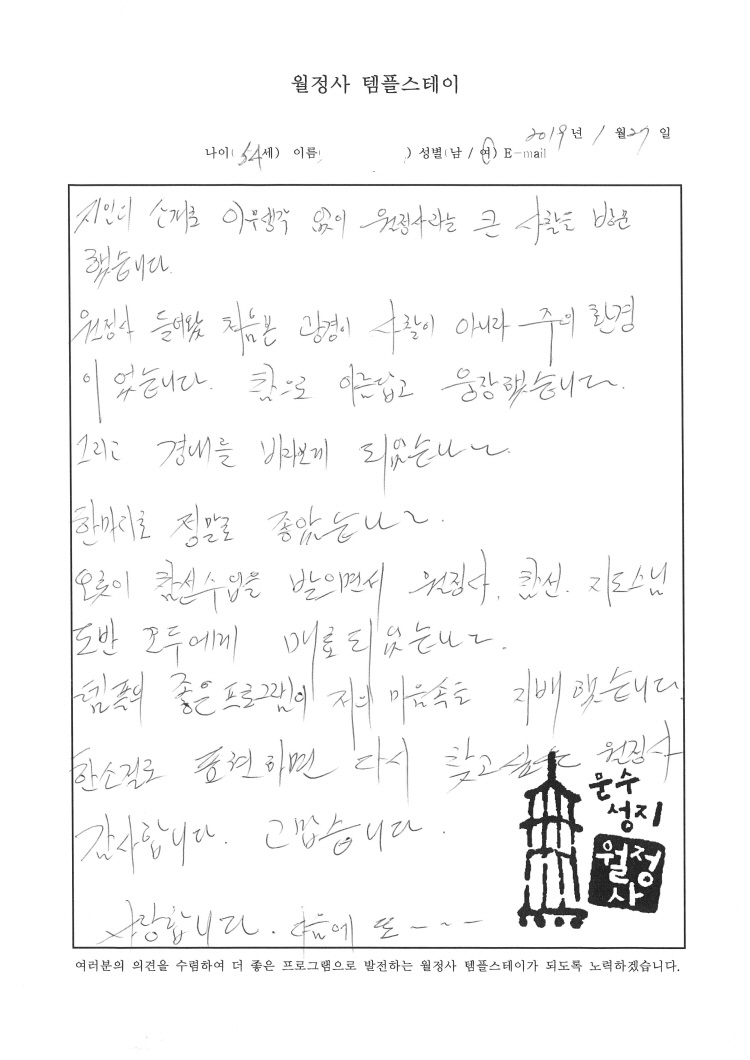 월정사 템플스테이
2019년 1월27일
나이(54세) 이름( ) 성별(남 / 여) E-mail
지인의 소개로 아무생각 없이 월정사라는 큰 사찰을 방문
했습니다.
월정사 들어왔 처음본 광경이 사찰이 아니라 주의 환경
이 었습니다. 참으로 아름답고 웅장했습니다.
그리고 경내를 바라보게 되었습니다.
한마디로 정말로 좋았습니다.
오롯이 참선수업을 받으면서 월정사, 참선. 지도스님
도반 모두에게 매료되었습니다.
템플의 좋은프로그램이 저의 마음속도 지배했습니다.
한소절로 표현하면 다시 찾고 월정사
감사합니다. 고맙습니다.
사랑합니다. 다음에 또~~~
문수
성지
월정
사
여러분의 의견을 수렴하여 더 좋은 프로그램으로 발전하는 월정사 템플스테이가 되도록 노력하겠습니다.